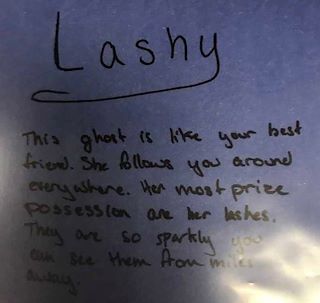 Lashy
This ghost is like your best
friend. She follows you around
everywhere. Her most prize
possession are her lashes.
They are so sparkly you
can see them from miles
away.